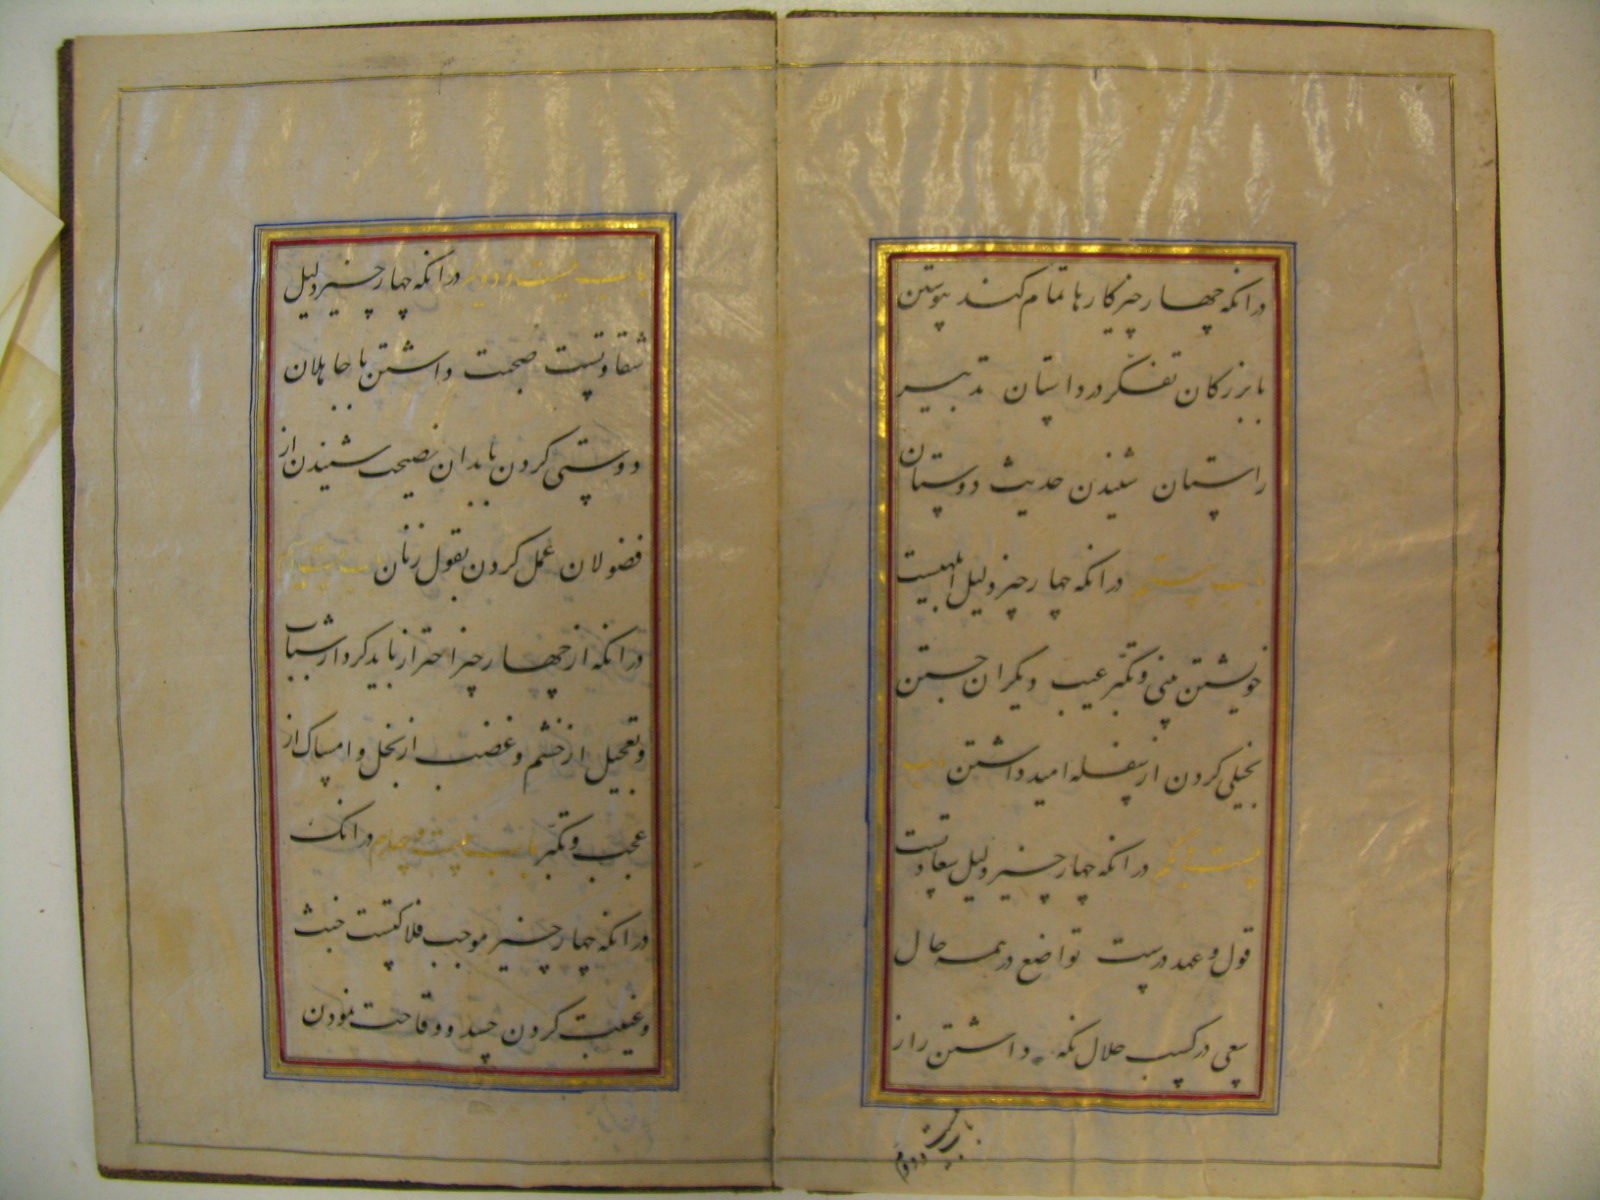 درانکه چهار چیز کارها تمام کند پیوستن
با بزرکان تفکر در داستان تدبیر
راستان شنیدن حدیث دوستان
باب بیستم درانکه چهار چیز دلیل ابلهیست
خویشتن بینی و تکبر عیب دیکران جستن
بخیلی کردن از سفله امید داشتن باب
بیست و یکم درانکه چهار چیز دلیل سعادتست
قول و عهد درست تواضع در همه حال
سعی در کسب حلال نکه داشتن راز
باب بیست و دوم
باب بیست و دویم درانکه چهار چیز دلیل
شقاوتست صحبت داشتن با جاهلان
دوستی کردن با بدان نصیحت شنیدن از
فضولان عمل کردن بقول زنان باب بیست و سیم
درانکه از چهار چیز احتراز باید کرد از شتاب
و تعجیل از خشم و غضب از بخل و امساک از
عجب و تکبر باب بیست و چهارم درانک
درانکه چهار چیز موجب فلاکتست خبث
و غیبت کردن حسد و وقاحت نمودن